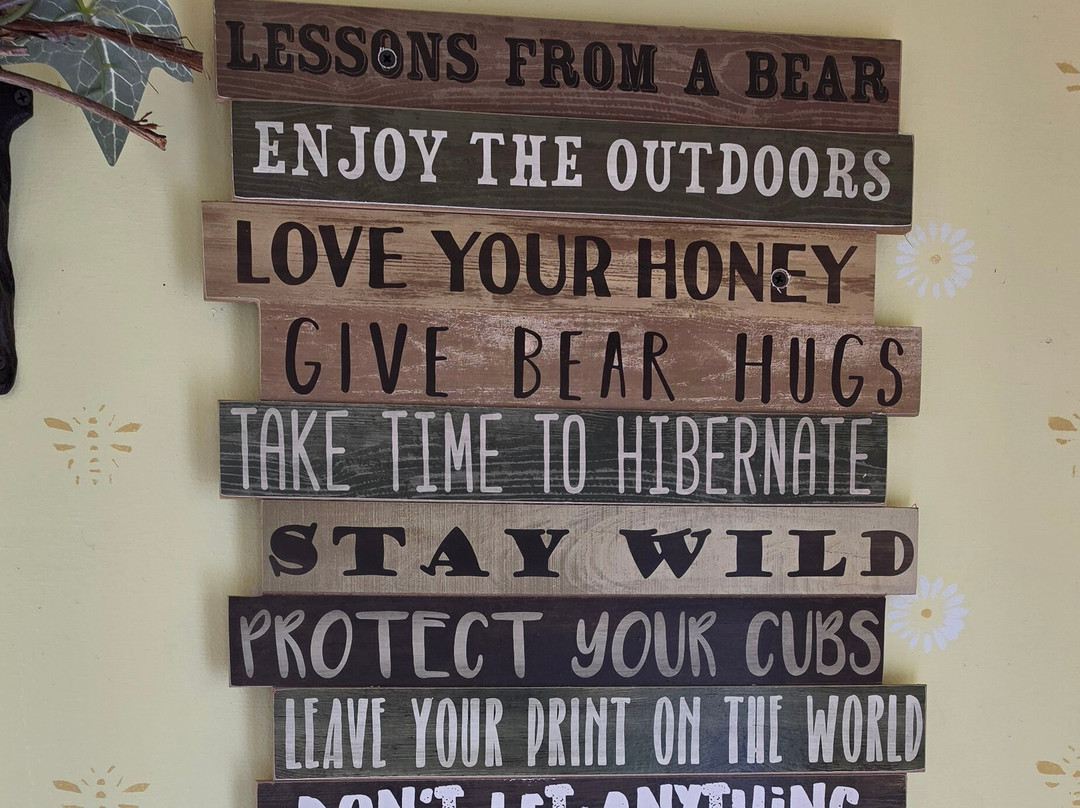 LESSONS FROM A BEAR
ENJOY THE OUTDOORS
LOVE YOUR HONEY
GIVE BEAR HUGS
TAKE TIME TO HIBERNATE
STAY WILD
PROTECT YOUR CUBS
LEAVE YOUR PRINT ON THE WORLD
DON'T LET ANYTHING